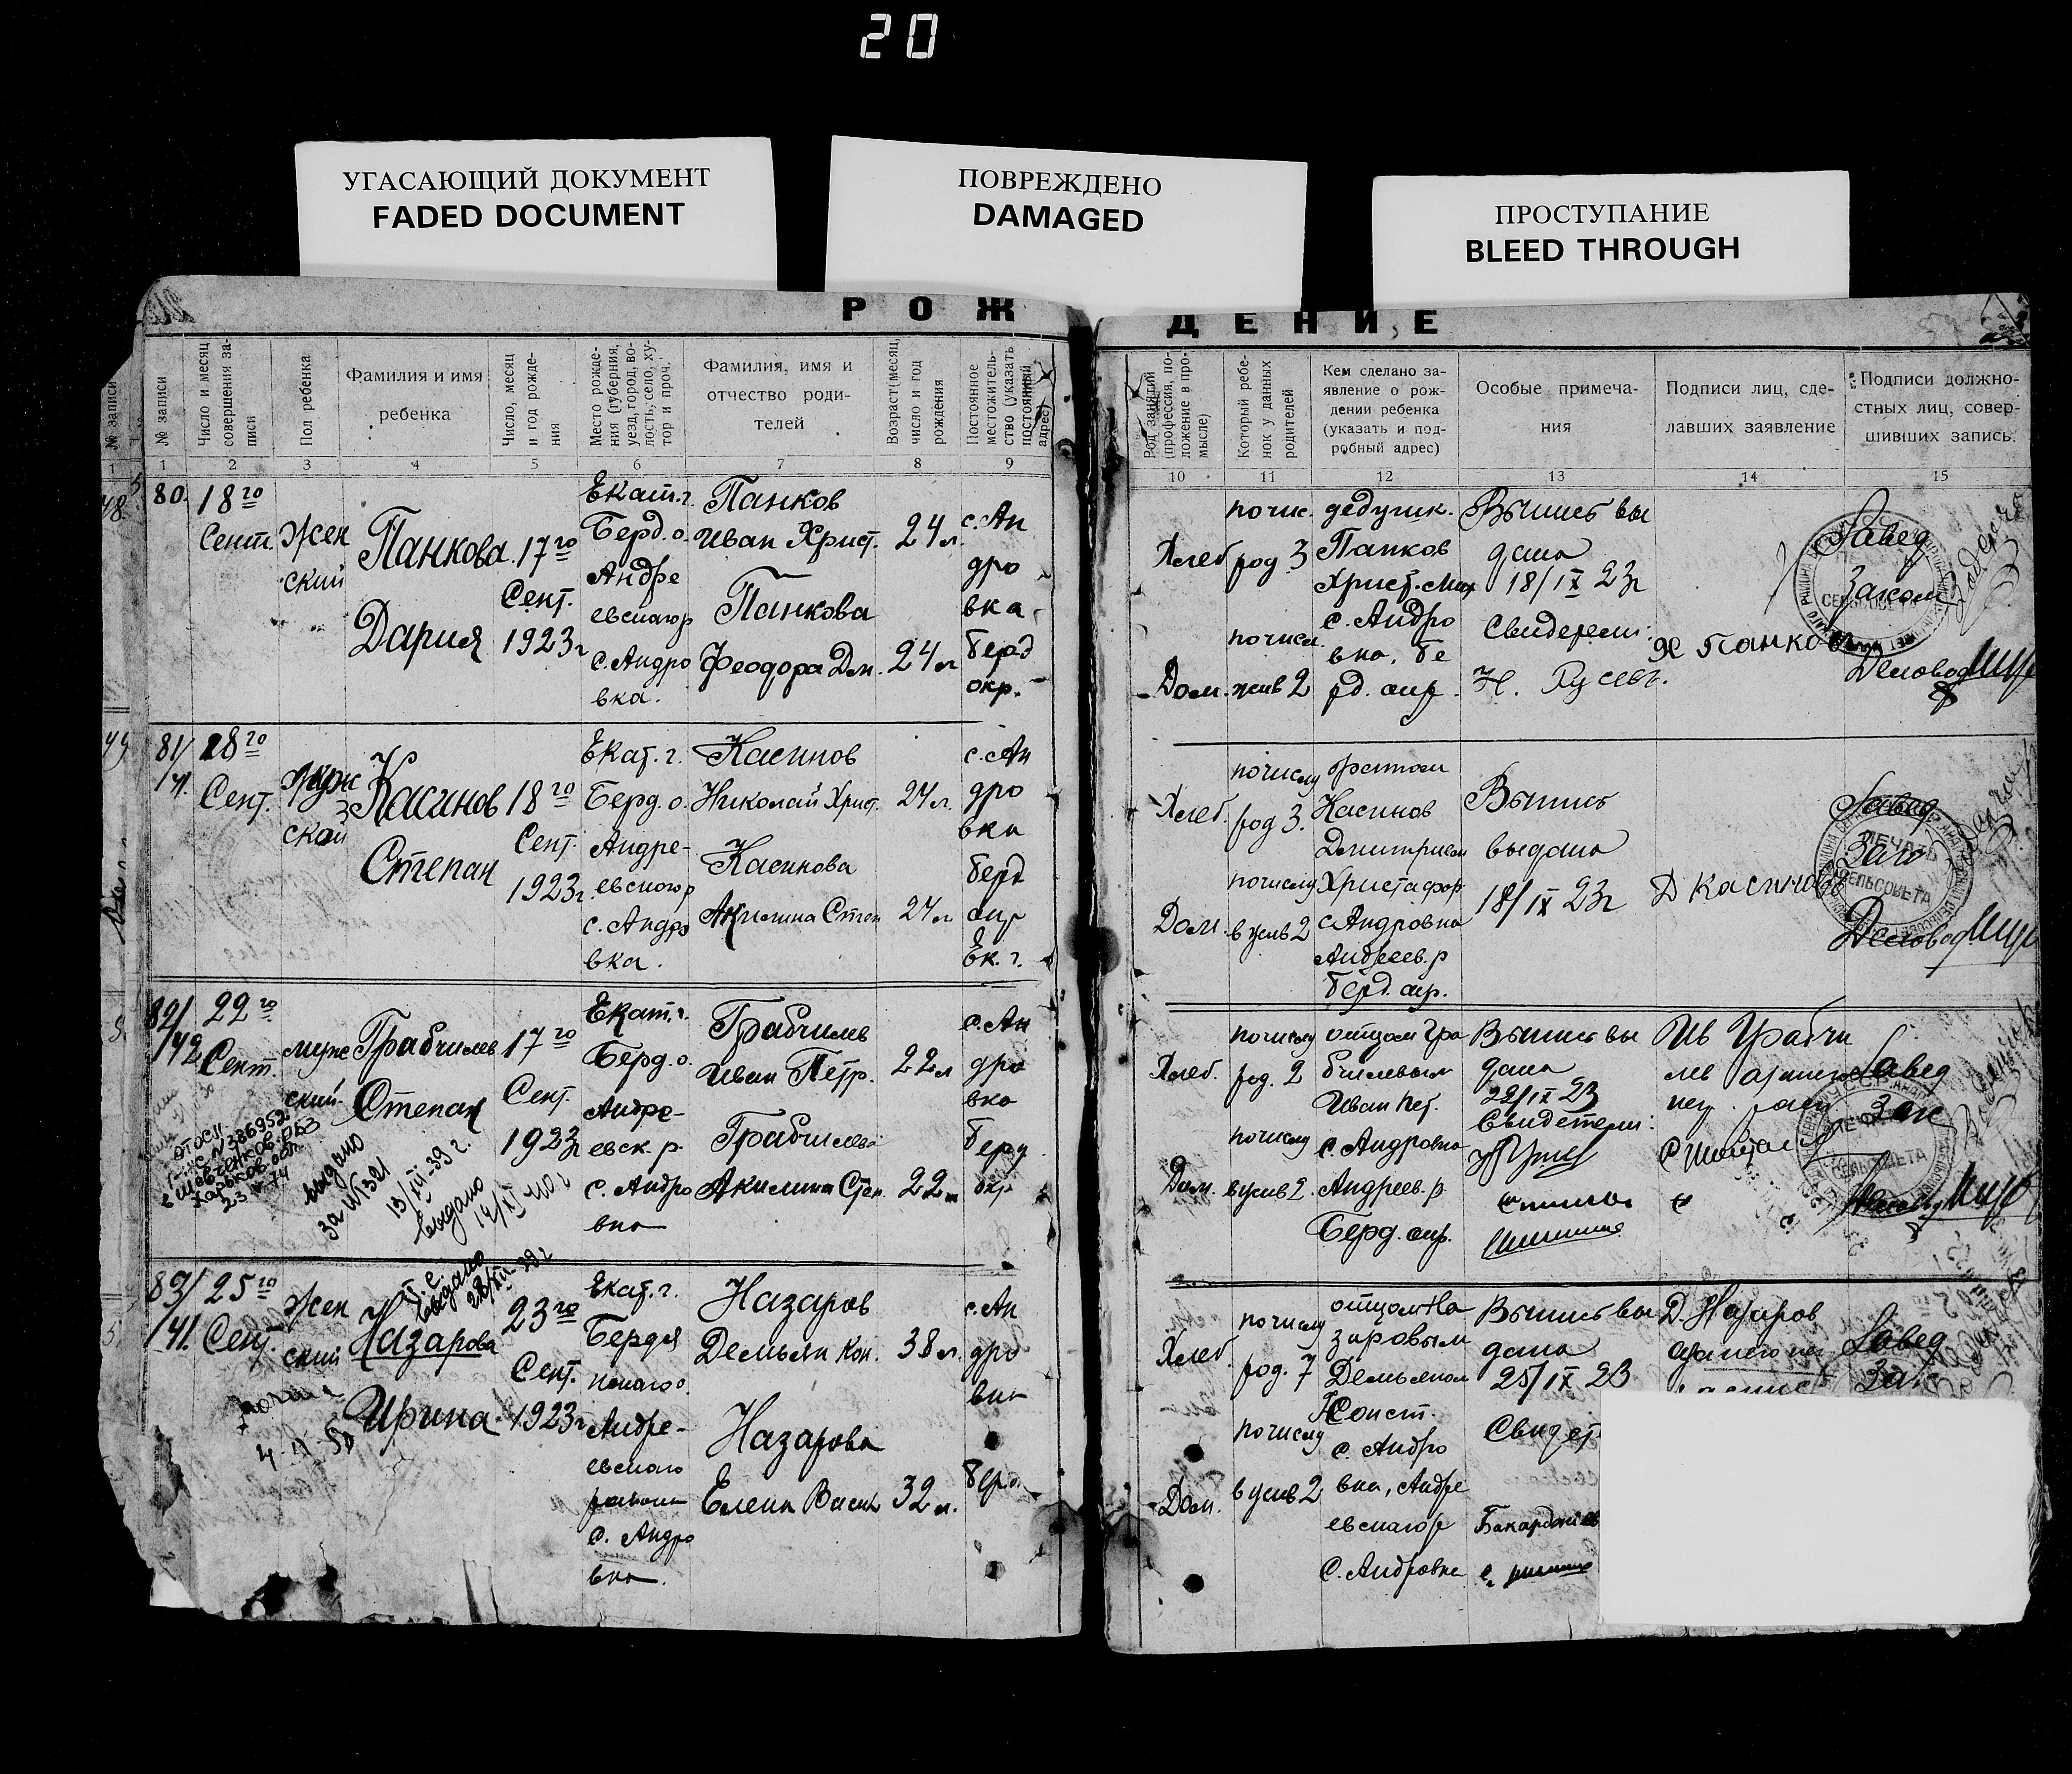 20
УГАСАЮЩИЙ ДОКУМЕНТ
FADED DOCUMENT
ПОВРЕЖДЕНО
DAMAGED
ПРОСТУПАНИЕ
BLEED THROUGH
РОЖДЕНИЕ
№ записи
№ записи
Число и месяц совершения за-
писи
Пол ребенка
Фамилия и имя
ребенка
Число, месяц
и год рожде-
ния
Место рожде-
ния (губерния,
уезд, город, во-
лость, село, ху-
тор и проч.
Фамилия, имя и
отчество роди-
телей
Возраст (месяц,
число и год
рождения
Постоянное
местожитель-
ство (указать
постоянный
адрес)
Род занятий
(профессия, по-
ложение в про-
мысле)
Который ребе-
нок у данных
родителей
Кем сделано за-
явление о рож-
дении ребенка
(указать и под-
робный адрес)
Особые примеча-
ния
Подписи лиц, сде-
лавших заявление
Подписи должно-
стных лиц, совер-
шивших запись.
1 1 2 3 4 5 6 7 8 9 10 11 12 13 14 15
48.
80.
18го
Сент.
Жен
ский
Панкова
Дария
17го
Сент.
1923г
Екат. г.
Берд. о.
Андре
евского р
с. Андро
вка.
Панков
Иван Христ.
Панкова
Феодора Дм.
24 л.
24 л
с. Ан
дро
вка
Берд
окр.
Хлеб
Дом.
по чис.
род 3
по числ.
жив 2
дедушк.
Панков
Христ. Мих
с. Андро
вка, Бе
рд. окр.
Выпись вы
дана
18/IX 23г
Свидетели:
Н. Гусевъ.
Х Панков
Завед
Загсом
Деловод
49
81/
71.
18го
Сент.
Муж
ской
Касинов
Степан
18го
Сент.
1923г.
Екат. г.
Берд. о.
Андре-
евского р
с. Андро
вка.
Касинов
Николай Христ.
Касинова
Акилина Степ
27 л.
27 л
с. Ан
дро
вка
Берд
окр
Ек. г.
Хлеб.
Дом.
по числу
род 3.
по числу
в жив 2
братом
Касинов
Дмитрием
Христофор
с Андровка
Андреев. р
Берд. окр.
Выпись
выдана
18/IX 23г
Д Касинов
Завед
Загс
ПЕЧАТЬ
СЕЛЬСОВЕТА
Деловод
82/
142
22го
Сент.
муж
ский
Грабчилев
Степан
17го
Сент.
1923г
Екат. г.
Берд. о.
Андре-
евск. р.
с. Андро
вка
Грабчилев
Иван Петр.
Грабчилева
Акилина Степ.
22 л
22 л
с. Ан
дро
вка
Берд
окр
Хлеб.
Дом.
по числу
род. 2
по числу
в жив 2.
отцом Гра
бчилевым
Иван Пет.
с. Андровка
Андреев. р
Берд. окр.
Выпись вы
дана
22/IX 23
Свидетели:
Ив Грабчи
лев
Завед
Загс
Деловод
386952
Харьков. обл.
23 IV 74
выдано
за №1321
13/III-39 г.
выдано
14/XI 40 г
83/
141.
25го
Сент.
Жен
ский
Назарова
Ирина
выдано
28/XII-39 г
4-IX-50
23го
Сент.
1923г
Екат. г.
Бердя
нского о.
Андре-
евского
района
с. Андро
вка.
Назаров
Демьян Кон.
Назарова
Елена Васил
38 л.
32 л.
с. Ан
дро
вка
Берд.
Хлеб.
Дом.
по числу
род. 7
по числу
в жив 2
отцом На
заровым
Демьяном
Конст.
с. Андро
вка, Андре
евского р
с. Андровка
Выпись вы
дана
25/IX 23
Свидет.
Бакарджиев
Д. Назаров
Завед
Загс